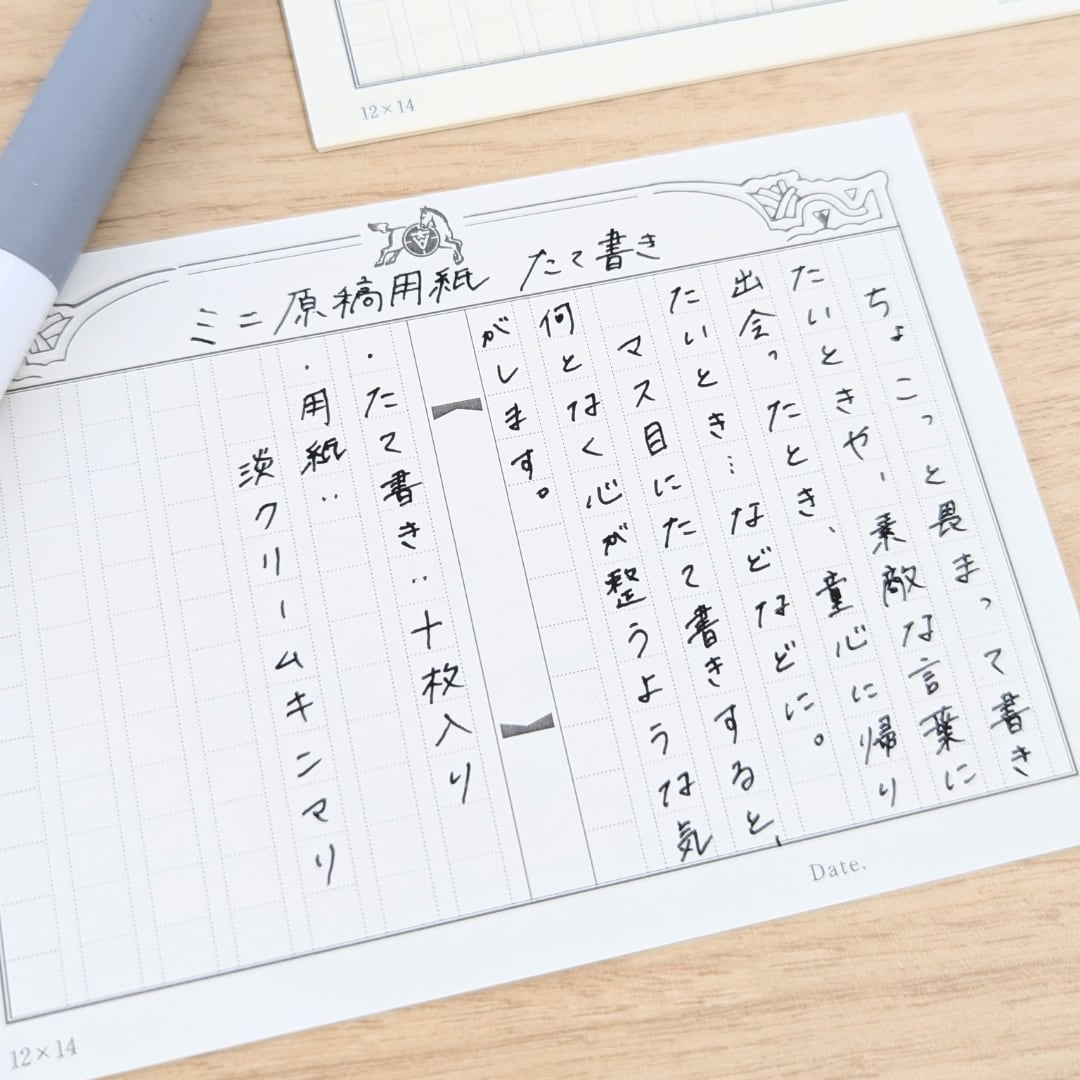 12×14
ミニ原稿用紙 たて書き
ちょこっと畏まって書き
たいときや、素敵な言葉に
出会ったとき、童心に帰り
たいとき…などなどに。
マス目にたて書きすると、
何となく心が整うような気
がします。
・たて書き‥十枚入り
・用紙‥
淡クリームキンマリ
Date.
12×14